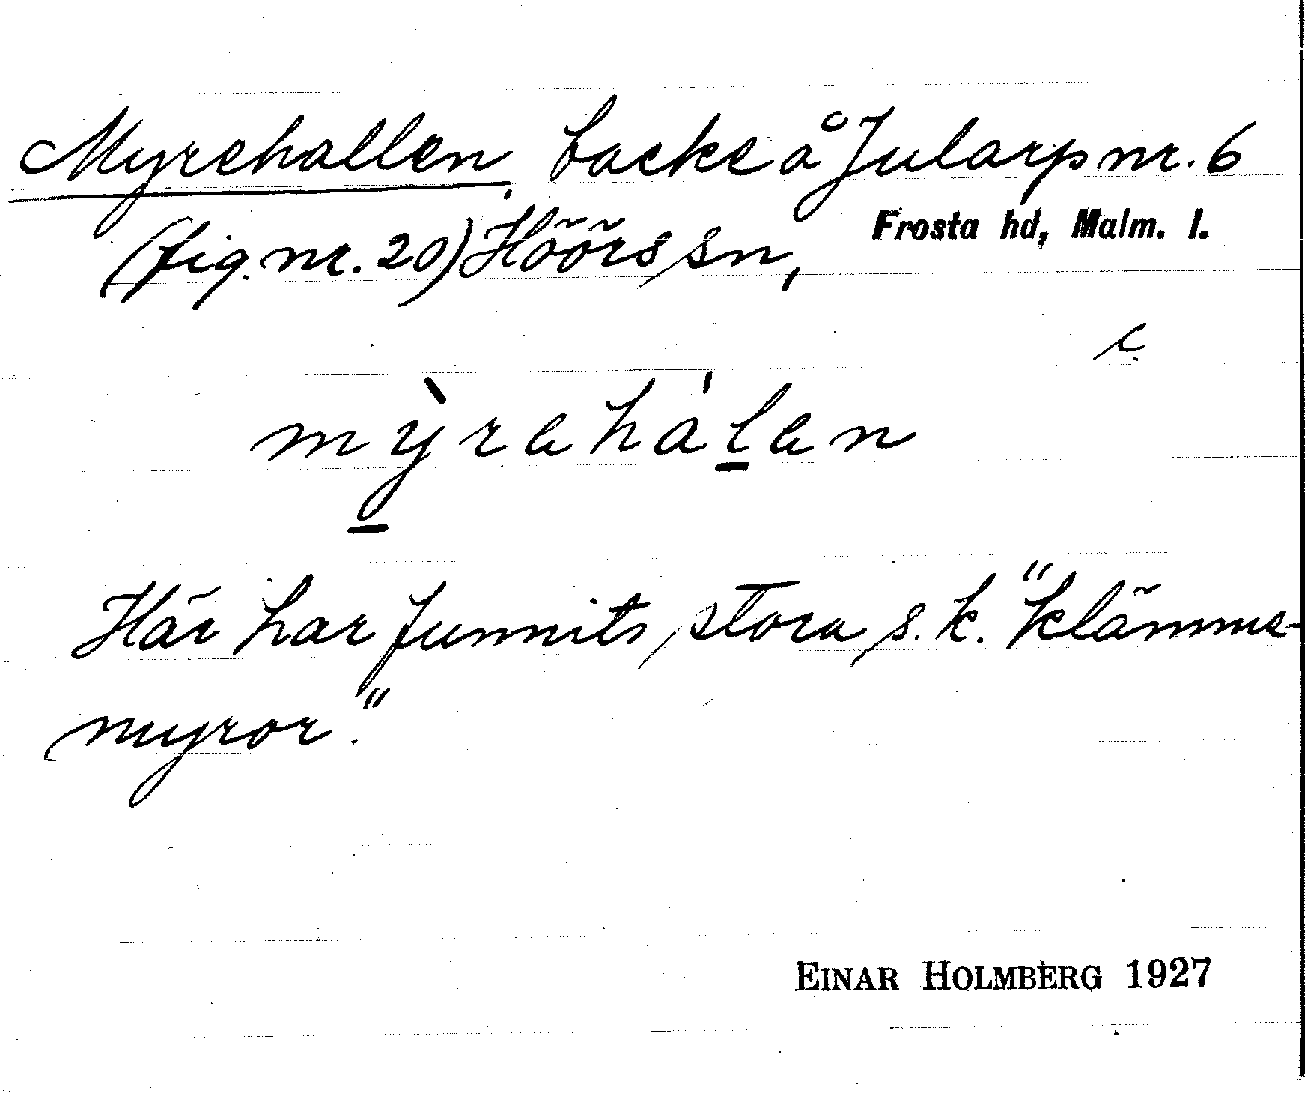 Myrehallen, backe å Jularp nr. 6
(fig. nr. 20) Höörs sn, Frosta hd, Malm. l.
c.
mỳrahálan
Här har funnits stora s. k. "klämme-
myror."
EINAR HOLMBERG 1927